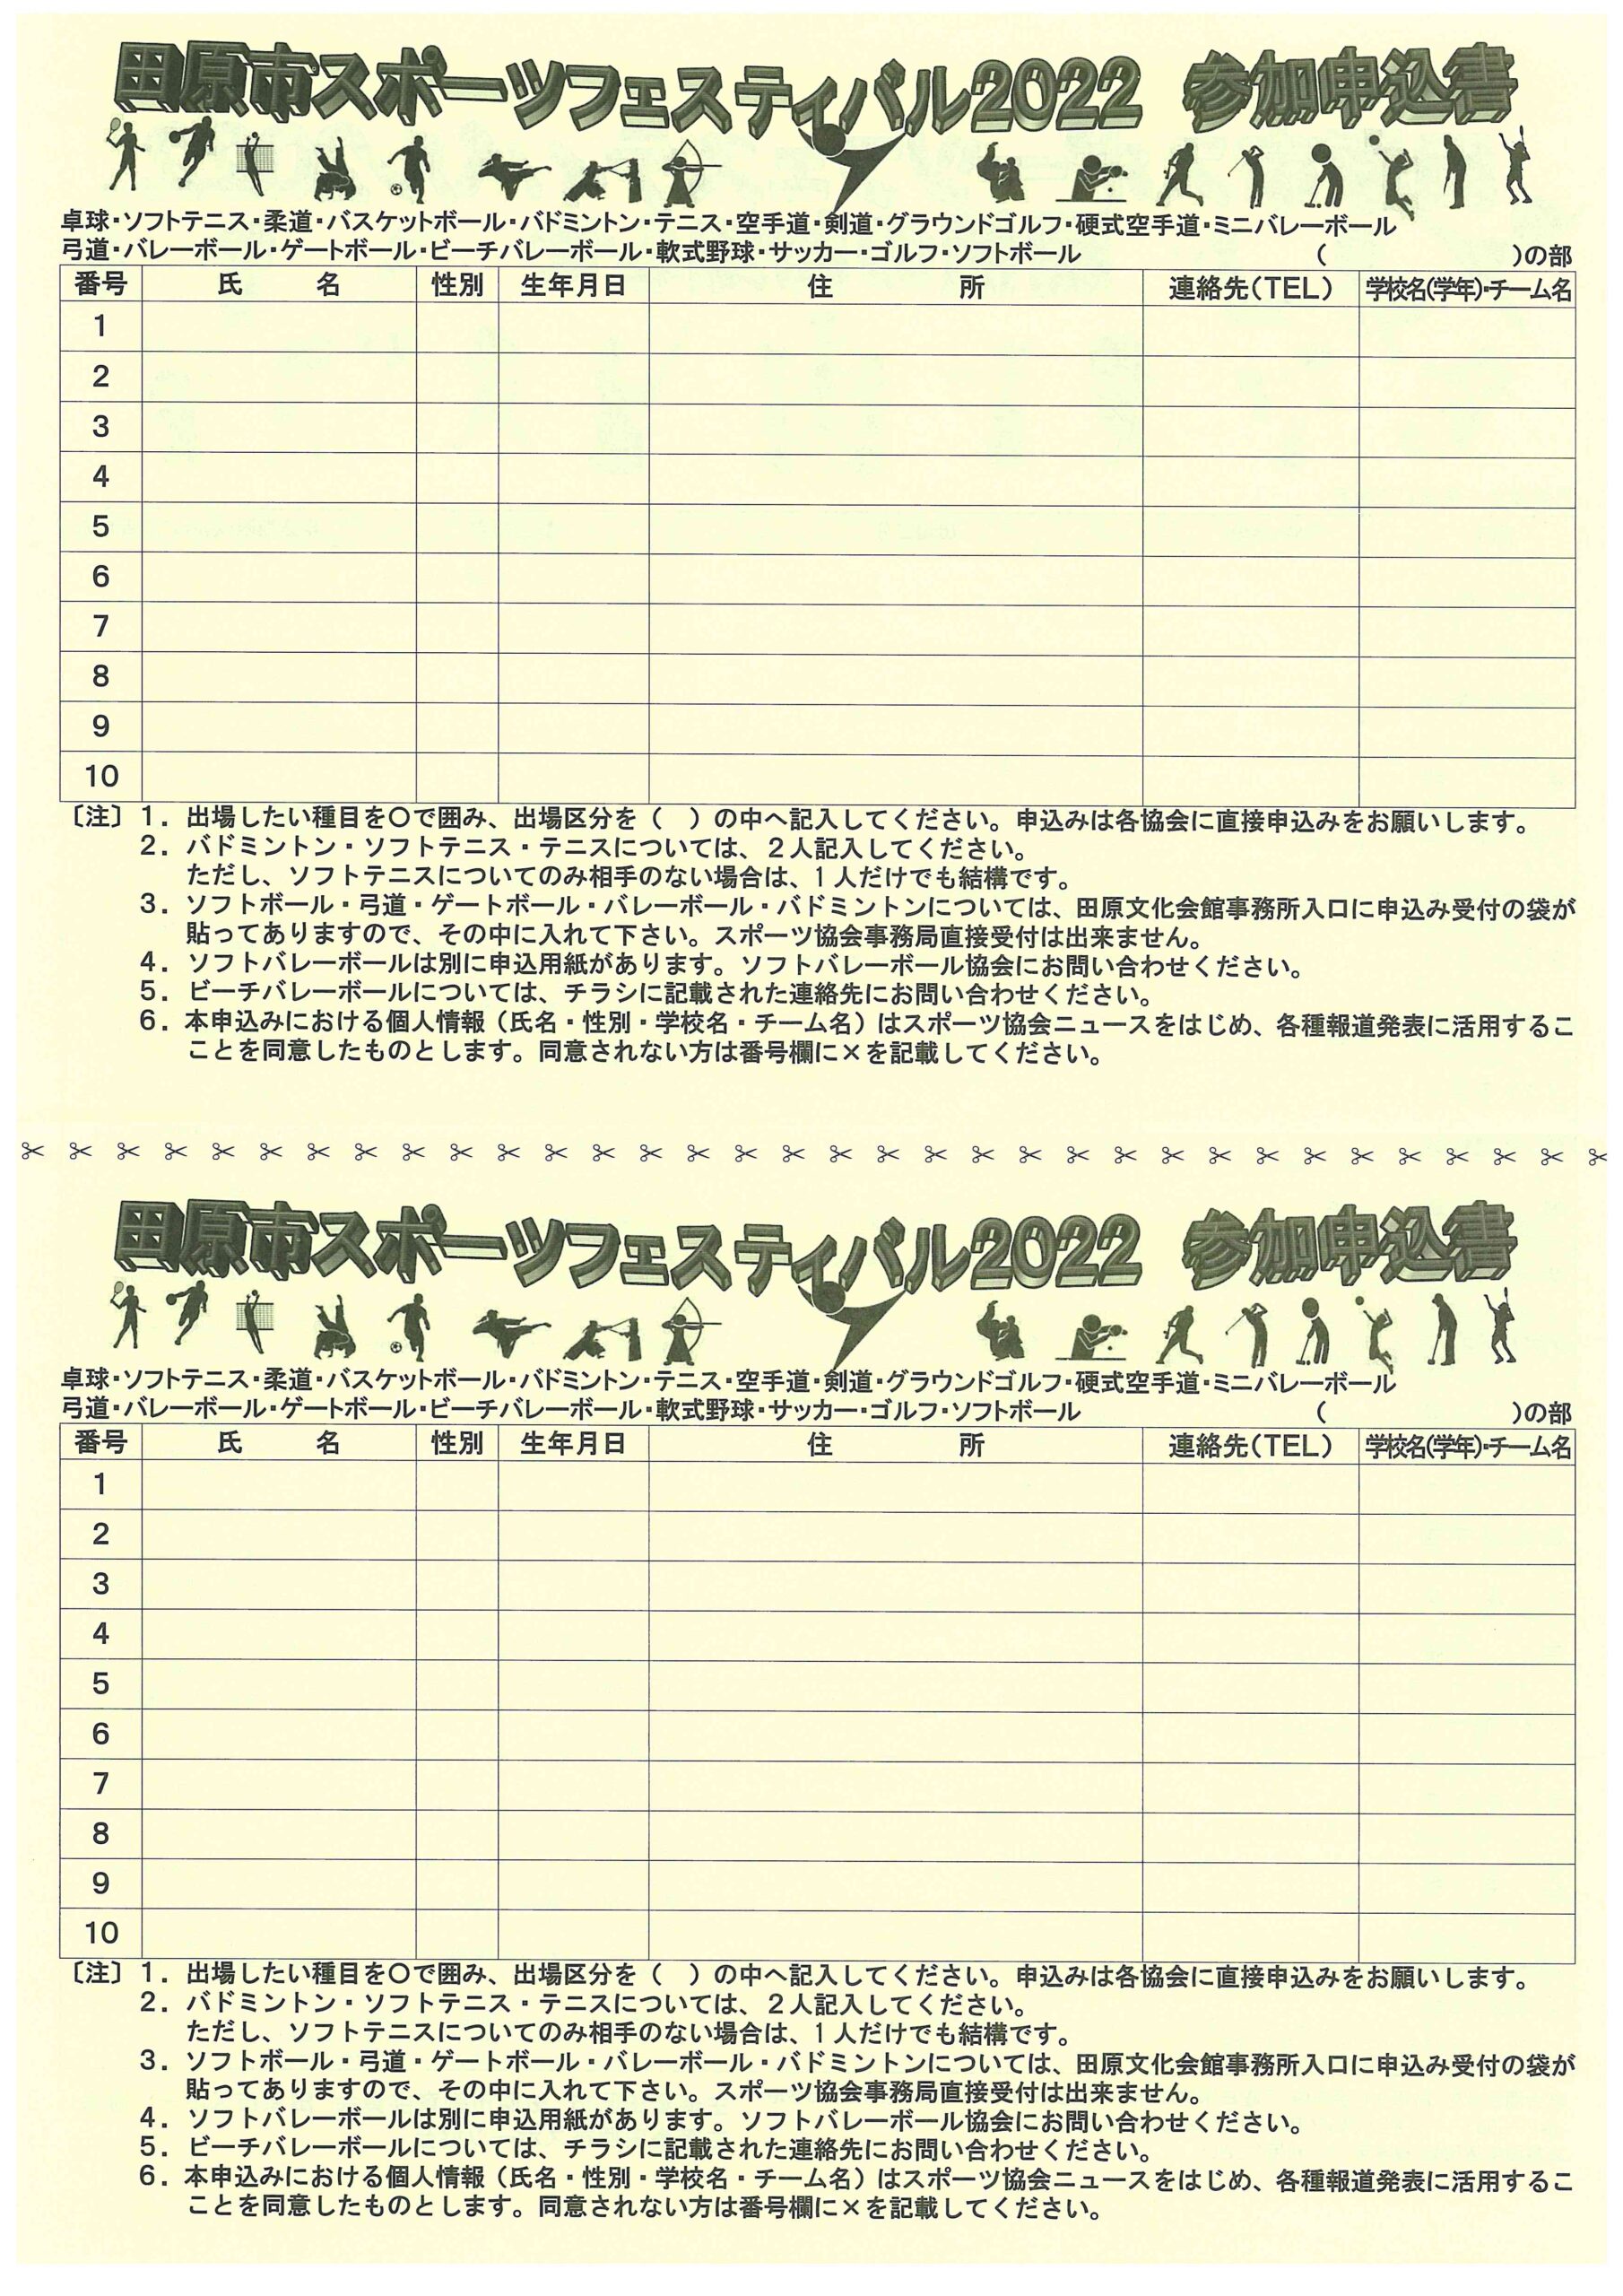 田原市スポーツフェスティバル2022 参加申込書
卓球・ソフトテニス・柔道・バスケットボール・バドミントン・テニス・空手道・剣道・グラウンドゴルフ・硬式空手道・ミニバレーボール
弓道・バレーボール・ゲートボール・ビーチバレーボール・軟式野球・サッカー・ゴルフ・ソフトボール （ ）の部
番号 氏 名 性別 生年月日 住 所 連絡先（TEL） 学校名(学年)・チーム名
1
2
3
4
5
6
7
8
9
10
〔注〕１．出場したい種目を〇で囲み、出場区分を（ ）の中へ記入してください。申込みは各協会に直接申込みをお願いします。
２．バドミントン・ソフトテニス・テニスについては、２人記入してください。
ただし、ソフトテニスについてのみ相手のない場合は、１人だけでも結構です。
３．ソフトボール・弓道・ゲートボール・バレーボール・バドミントンについては、田原文化会館事務所入口に申込み受付の袋が
貼ってありますので、その中に入れて下さい。スポーツ協会事務局直接受付は出来ません。
４．ソフトバレーボールは別に申込用紙があります。ソフトバレーボール協会にお問い合わせください。
５．ビーチバレーボールについては、チラシに記載された連絡先にお問い合わせください。
６．本申込みにおける個人情報（氏名・性別・学校名・チーム名）はスポーツ協会ニュースをはじめ、各種報道発表に活用するこ
ことを同意したものとします。同意されない方は番号欄に×を記載してください。
田原市スポーツフェスティバル2022 参加申込書
卓球・ソフトテニス・柔道・バスケットボール・バドミントン・テニス・空手道・剣道・グラウンドゴルフ・硬式空手道・ミニバレーボール
弓道・バレーボール・ゲートボール・ビーチバレーボール・軟式野球・サッカー・ゴルフ・ソフトボール （ ）の部
番号 氏 名 性別 生年月日 住 所 連絡先（TEL） 学校名(学年)・チーム名
1
2
3
4
5
6
7
8
9
10
〔注〕１．出場したい種目を〇で囲み、出場区分を（ ）の中へ記入してください。申込みは各協会に直接申込みをお願いします。
２．バドミントン・ソフトテニス・テニスについては、２人記入してください。
ただし、ソフトテニスについてのみ相手のない場合は、１人だけでも結構です。
３．ソフトボール・弓道・ゲートボール・バレーボール・バドミントンについては、田原文化会館事務所入口に申込み受付の袋が
貼ってありますので、その中に入れて下さい。スポーツ協会事務局直接受付は出来ません。
４．ソフトバレーボールは別に申込用紙があります。ソフトバレーボール協会にお問い合わせください。
５．ビーチバレーボールについては、チラシに記載された連絡先にお問い合わせください。
６．本申込みにおける個人情報（氏名・性別・学校名・チーム名）はスポーツ協会ニュースをはじめ、各種報道発表に活用するこ
ことを同意したものとします。同意されない方は番号欄に×を記載してください。